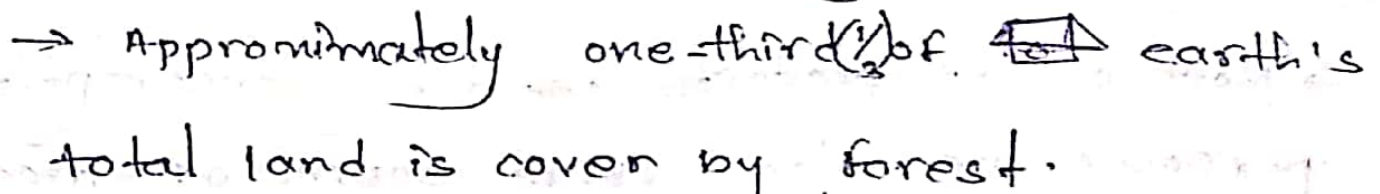 → Appronimately one-third(1/3)of earth's
total land is cover by forest.